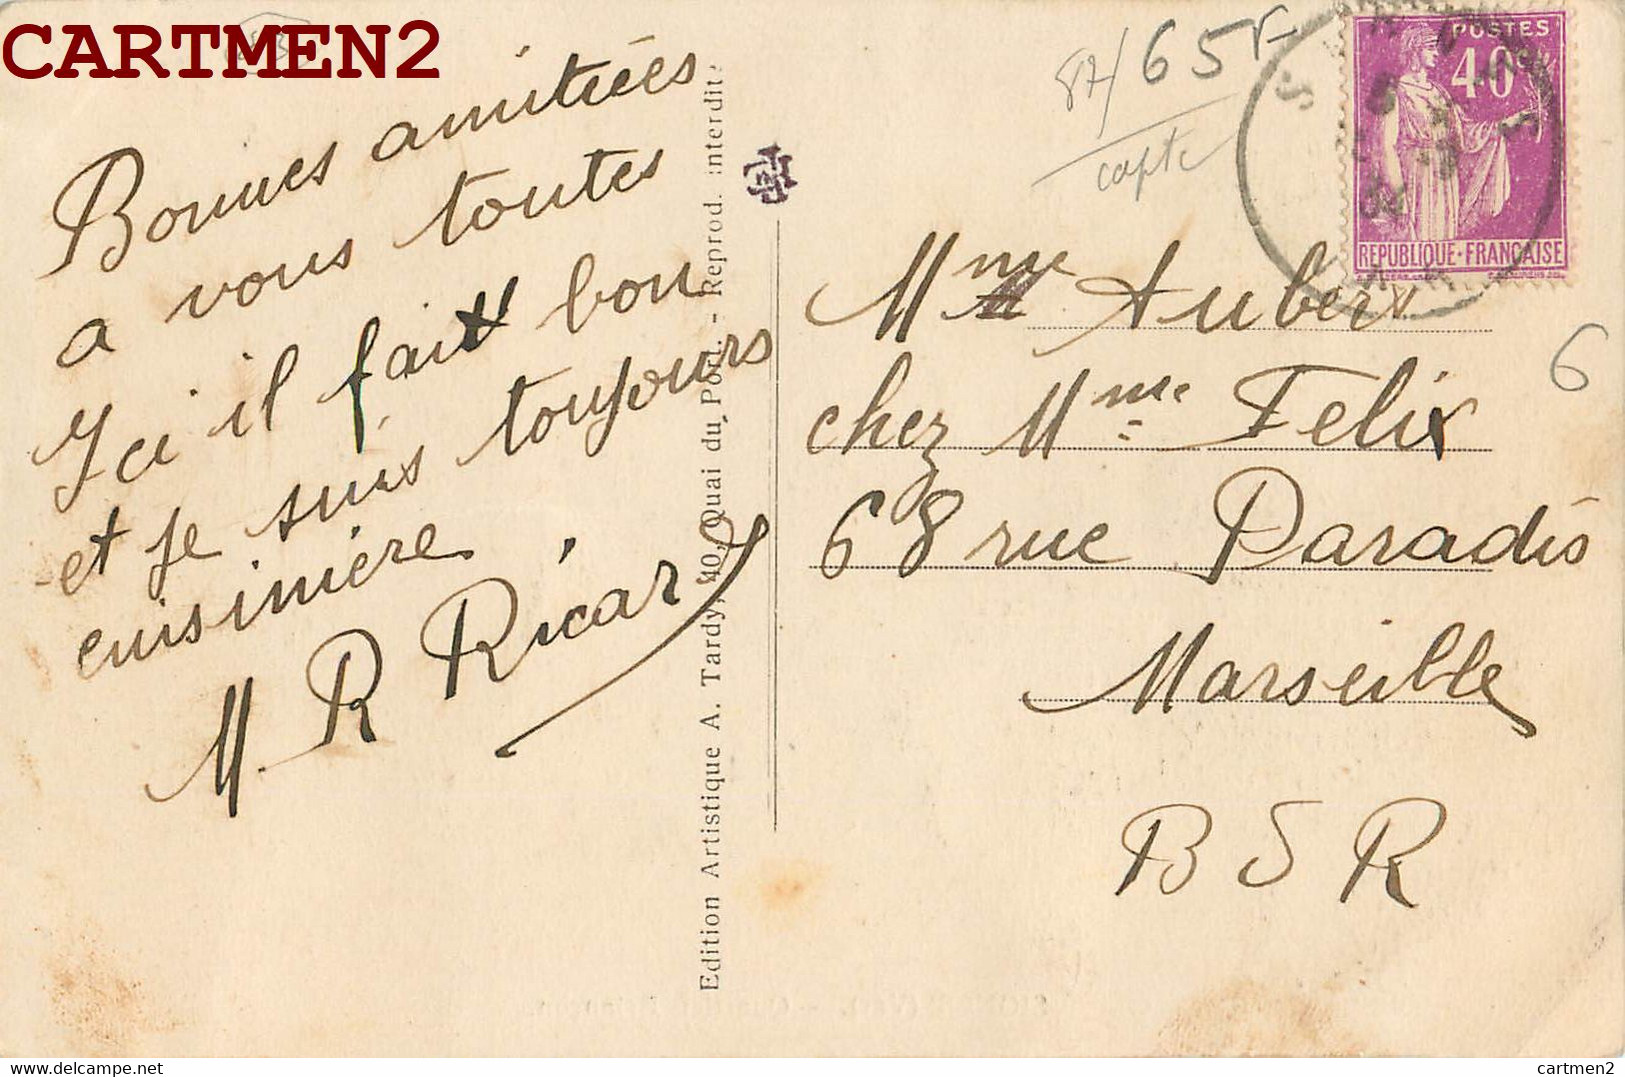 CARTMEN2
Bonnes amitiées
a vous toutes
Ici il fait bon
et je suis toujours
cuisinière
M. R Ricard
Edition Artistique A. Tardy, 40, Quai du Port. - Reprod. interdite
87/65F
capte
POSTES
40c
REPUBLIQUE-FRANÇAISE
Mme Aubert
chez Mme Felix
6
68 rue Paradis
Marseille
B D R
cartmen2